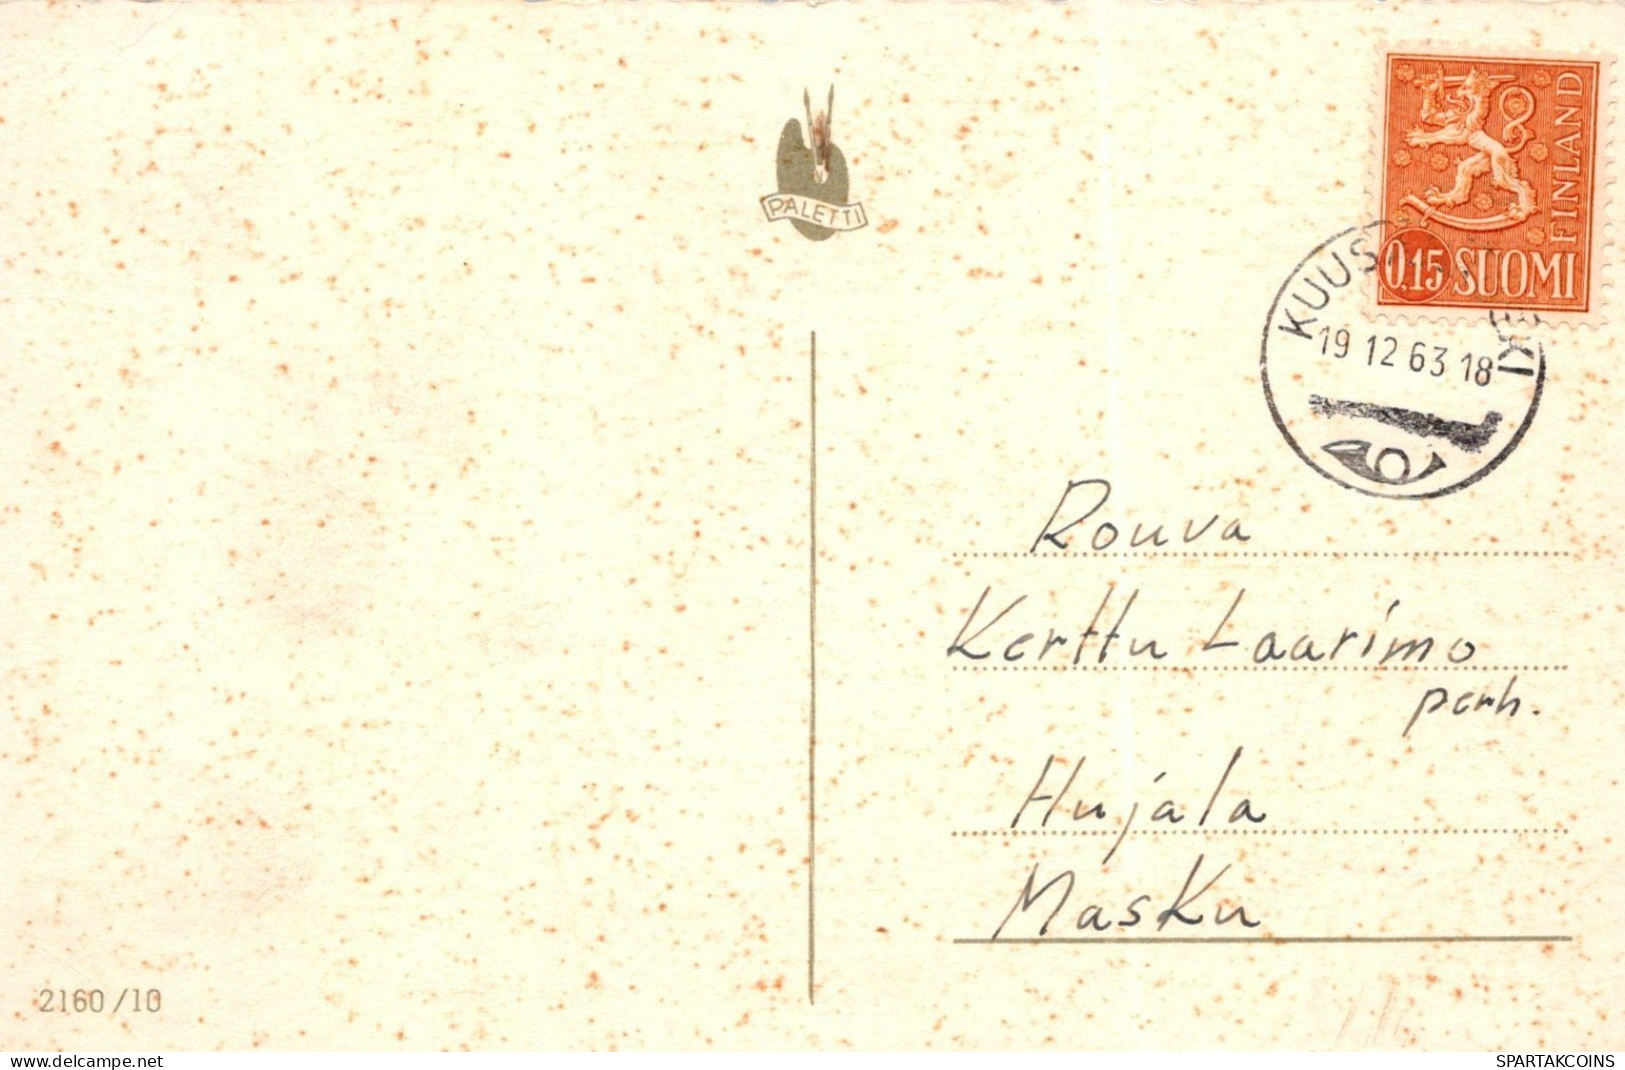 PALETTI
FINLAND
0,15 SUOMI
19 12 63 18
Rouva
Kerttu Laarimo
perh.
Hujala
Masku
2160/10
https://www.delcampe.net
SPARTAKCOINS